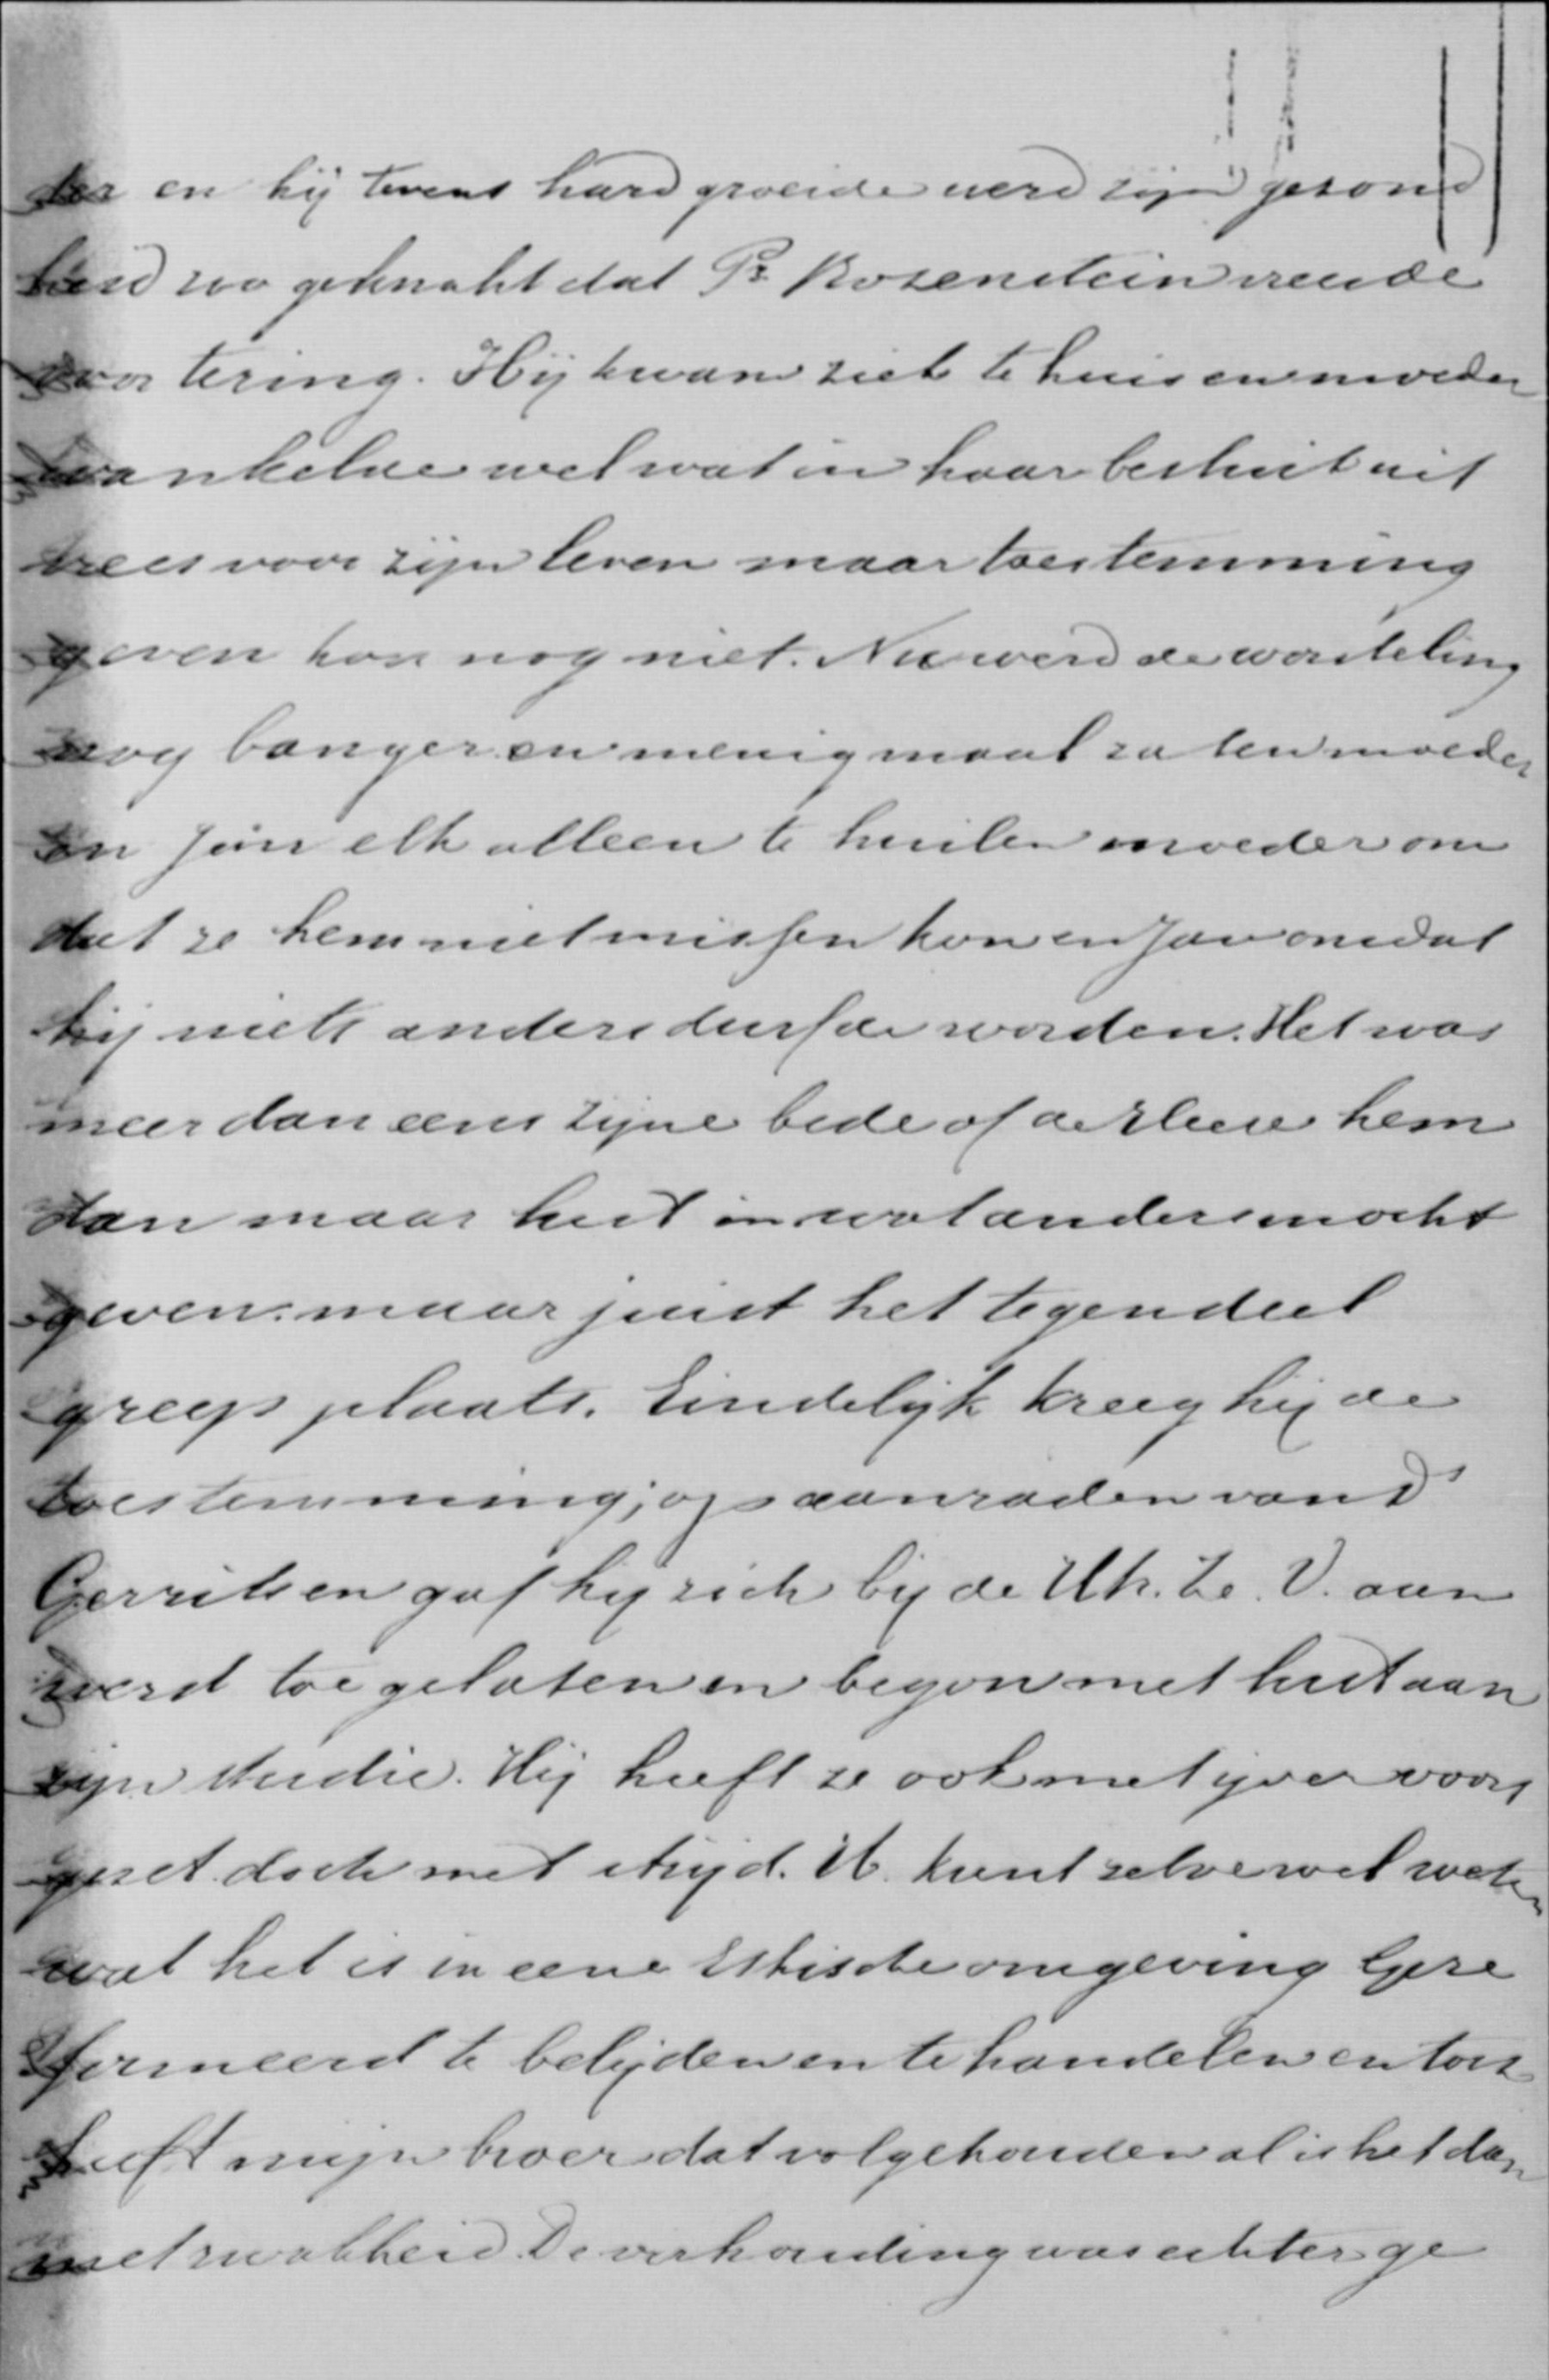 der en hij tevens hard groeide werd zijn gezond
heid zoo geknakt dat Pr. Rosenstein vreesde
voor tering. Hij kwam ziek te huis en moeder
wankelde wel wat in haar besluit uit
vrees voor zijn leven maar toestemming
geven kon nog niet. Nu werd de worsteling
nog banger en menigmaal zaten moeder
en Jan elk alleen te huilen moeder om
dat ze hem niet missen kon en Jan omdat
hij niets anders durfde worden. Het was
meer dan eens zijne bede of de Heere hem
dan maar lust in wat anders mocht
geven. maar juist het tegendeel
greep plaats. Eindelijk kreeg hij de
toestemming; op aanraden van Ds
Gerritsen gaf hij zich bij de Utr. Ze. V. aan
werd toegelaten en begon met lust aan
zijn studie. Hij heeft ze ook met ijver voort
gezet doch met strijd. U kunt zelve wel weten
wat het is in eene Ethische omgeving Gere
formeerd te belijden en te handelen en toch
heeft mijn broer dat volgehouden al is het dan
met zwakheid. De verhouding was echter ge